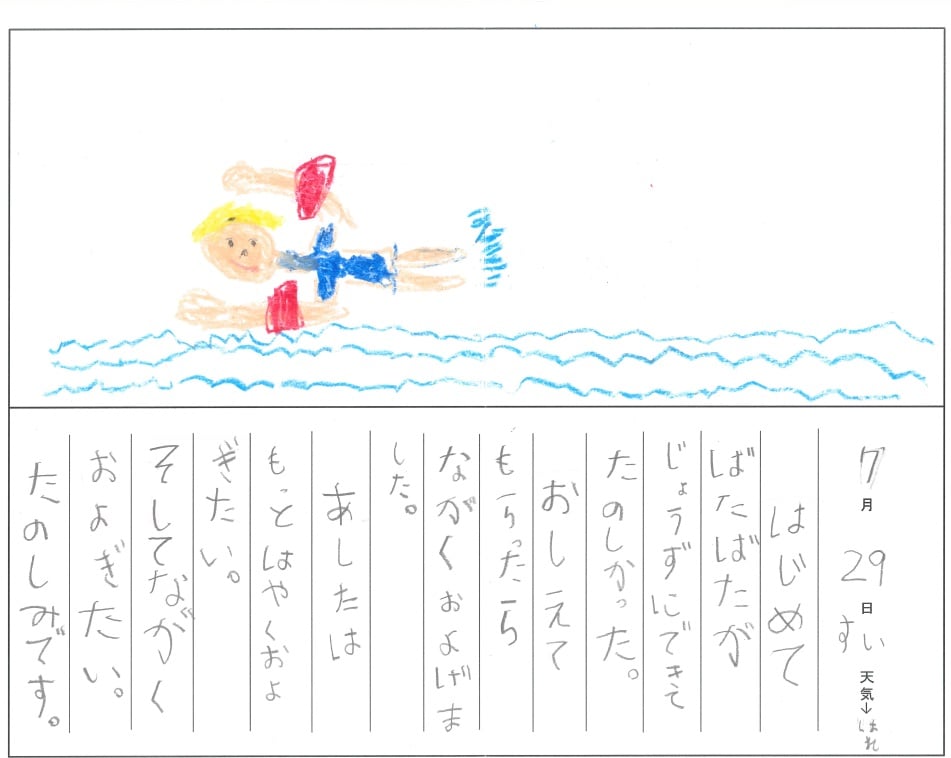 7月29日すい天気→はれ
はじめて
ばたばたが
じょうずにできて
たのしかった。
おしえて
もらったら
ながくおよげま
した。
あしたは
もっとはやくおよ
ぎたい。
そしてながく
およぎたい。
たのしみです。